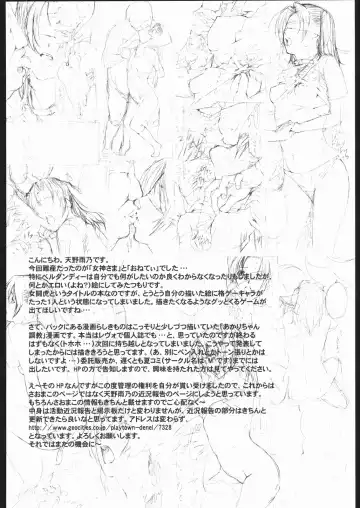 こんにちわ、天野雨乃です。
今回難産だったのが「女神さま」と「おねてぃ」でした…
特にベルダンディーは自分でも何がしたいのか良くわからなくなったりもしましたが、
何とかエロい(よね?)絵にしてみたつもりです。
女闘虎というタイトルの本なのですが、とうとう自分の描いた絵に格ゲーキャラが
たった1人という状態になってしまいました。描きたくなるようなグッとくるゲームが
出てほしいですね…
さて、バックにある漫画らしきものはこっそりと少しづつ描いていた「あかりちゃん
調教」漫画です。本当はレヴォで個人誌でも…と、思っていましたのですが終わる
はずもなく(トホホ…)次回に持ち越しとなってしまいました。こうやって発表して
しまったからには描ききろうと思ってます。(あ、別にペン入れとかトーン張りとかは
しないですよ…)委託販売か、遅くとも夏コミ(サークル名は"V"です)までには
出したいです。HPの方で告知しますので、興味を持たれた方は見てやってください。
え〜そのHPなんですがこの度管理の権利を自分が買い受けましたので、これからは
さおまこのページではなく天野雨乃の近況報告のページにしようと思っています。
もちろんさおまこの情報もきちんと載せますのでご心配なく〜
中身は活動近況報告と掲示板だけと変わりませんが、近況報告の部分はきちんと
更新できたら良いなと思ってます。アドレスは変わらず、
http://www.geocities.co.jp/playtown-denei/7328
となっています。よろしくお願いします。
それではまたの機会に〜